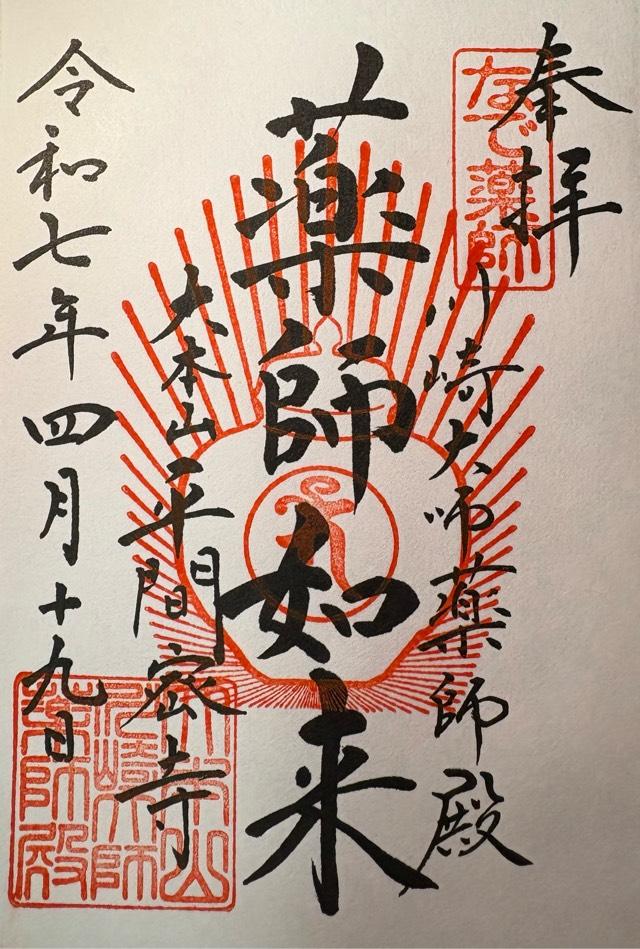 奉拝
なで薬師
川崎大師薬師殿
薬師如来
大本山平間密寺
令和七年四月十九日
大本山
川崎大師
薬師殿